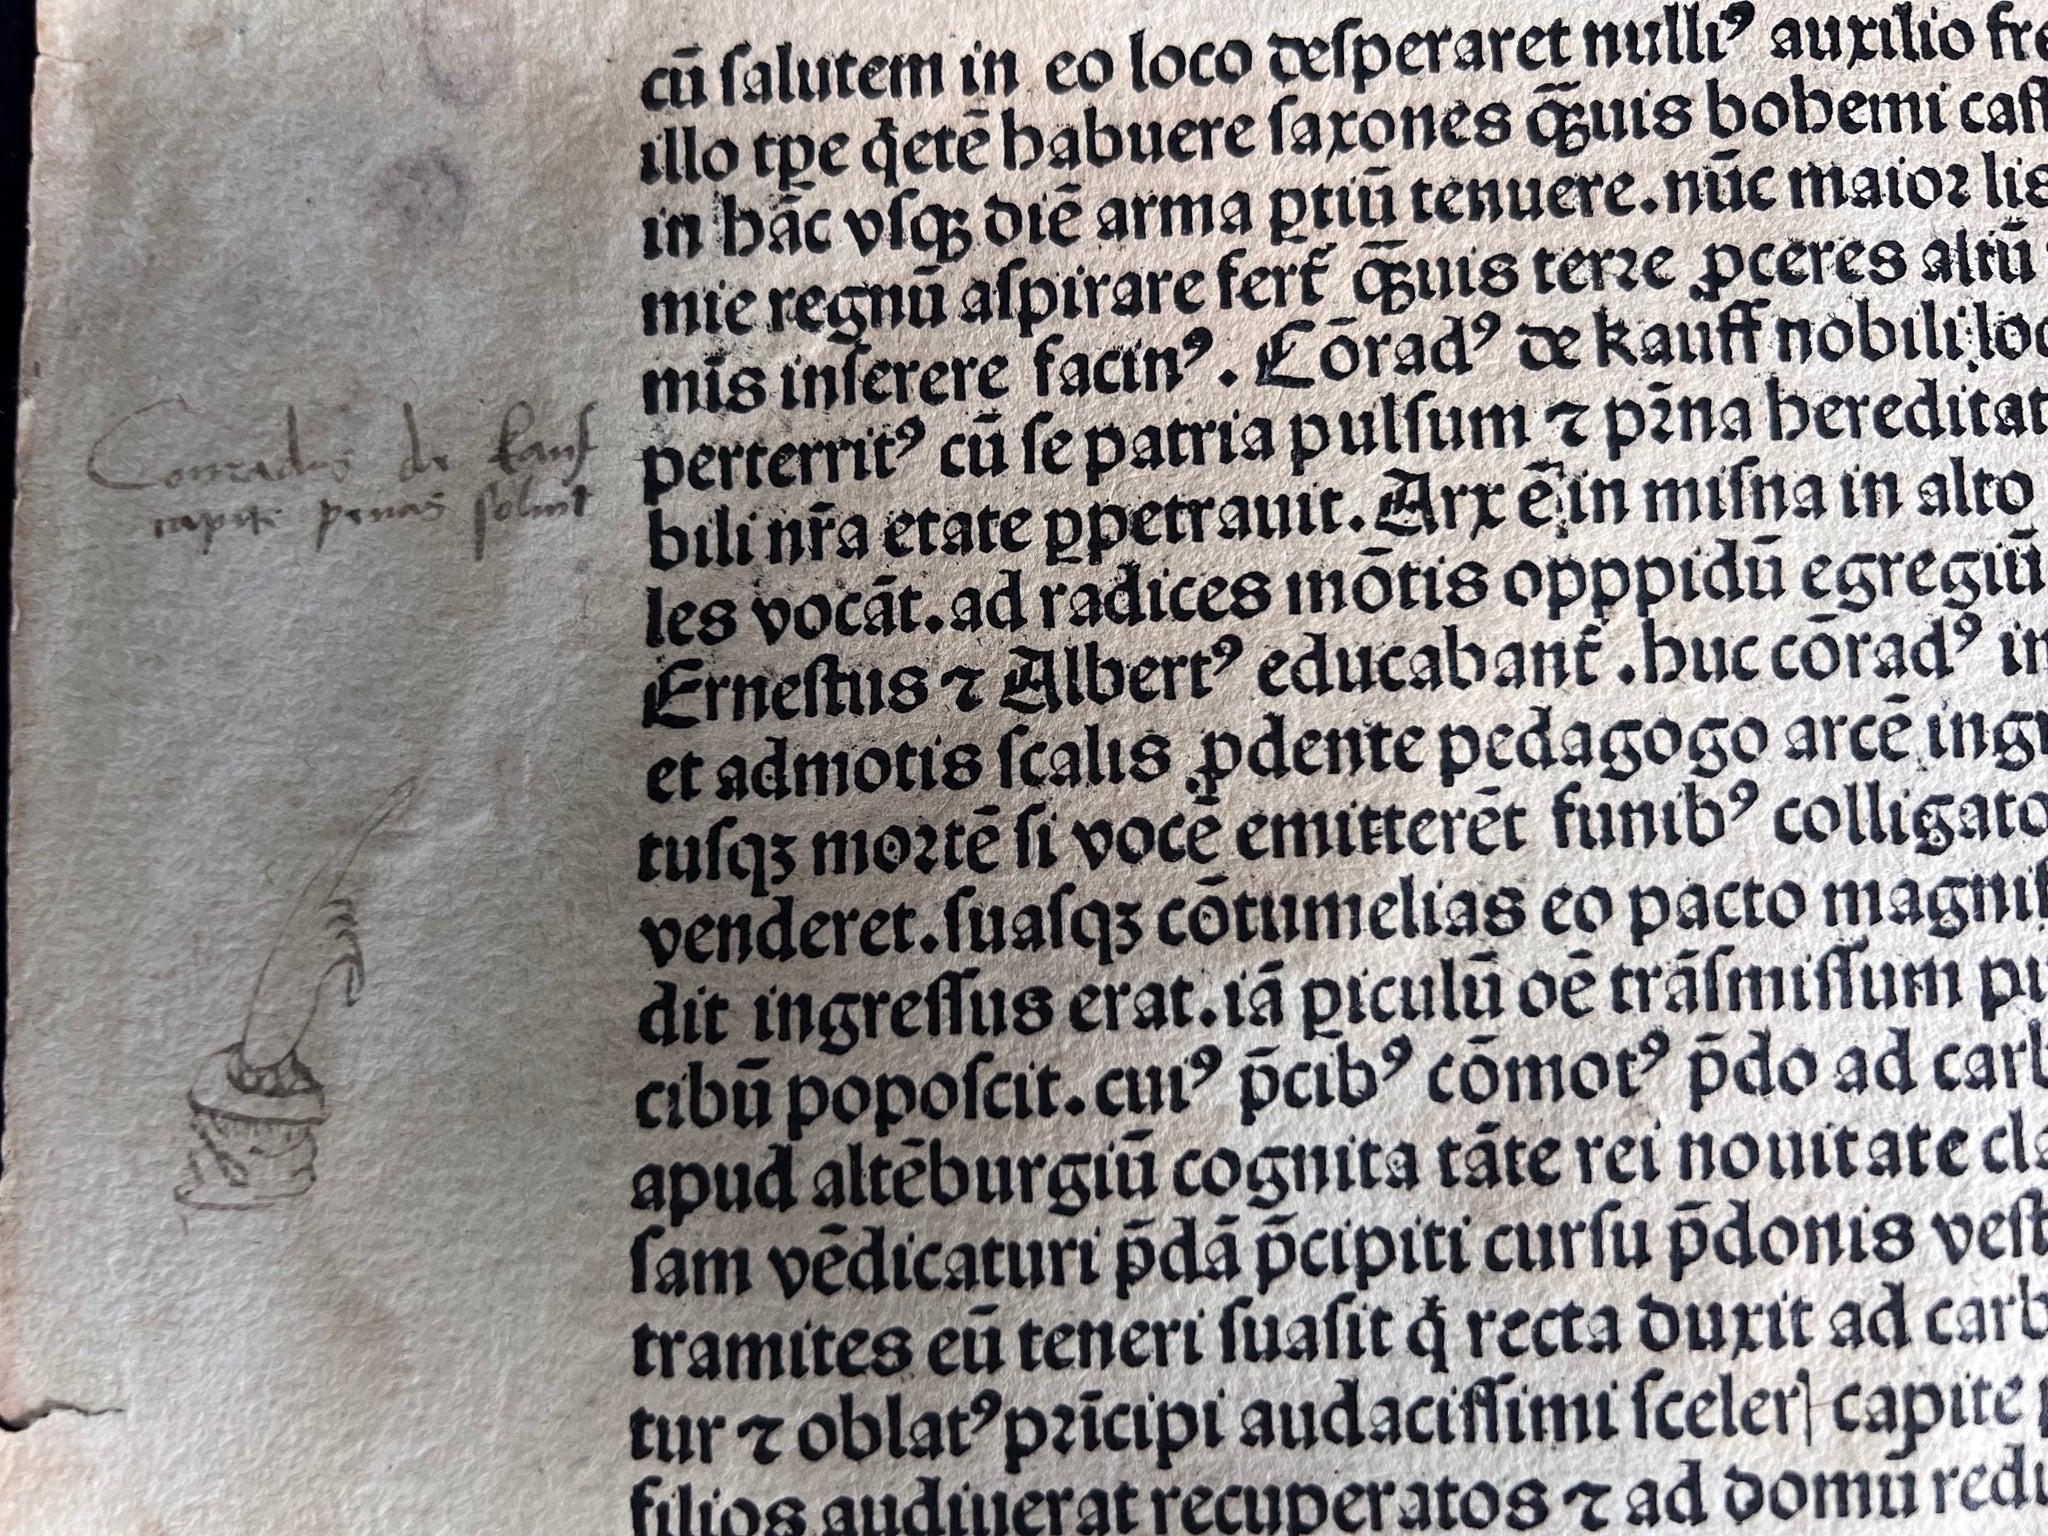 cū ſalutem in eo loco deſperaret nulliꝰ auxilio fre
illo tꝑe q̄etē habuere ſaxones q̄ꝫuis bohemi caſt
in hāc vſqꝫ diē arma ꝑtiū tenuere. nūc maior lis
mie regnū aſpirare fert᷑ q̄ꝫuis terre ꝓceres aliū
mīs inſerere facinꝰ. Cōradꝰ de kauff nobili loc
perterritꝰ cū ſe patria pulſum ⁊ pr̄na hereditat
bili nr̄a etate ꝑpetrauit. Arx ē in miſna in alto
les vocāt. ad radices mōtis opppidū egregiū
Erneſtus ⁊ Albertꝰ educabant᷑. huc cōradꝰ in
et admotis ſcalis ꝓdente pedagogo arcē ingr
tuſqꝫ mortē ſi vocē emitterēt funibꝰ colligato
venderet. ſuaſqꝫ cōtumelias eo pacto magnif
dit ingreſſus erat. iā ꝑiculū oē trāſmiſſum pu
cibū popoſcit. cuiꝰ p̄cibꝰ cōmotꝰ p̄do ad carb
apud altēburgiū cognita tāte rei nouitate cla
ſam vēdicaturi p̄dā p̄cipiti curſu p̄donis veſt
tramites eū teneri ſuaſit q̄ recta duxit ad carb
tur ⁊ oblatꝰ prīcipi audaciſſimi ſceler capite
filios audiuerat recuperatos ⁊ ad domū redu
Conradus de kauf
capite penas soluit